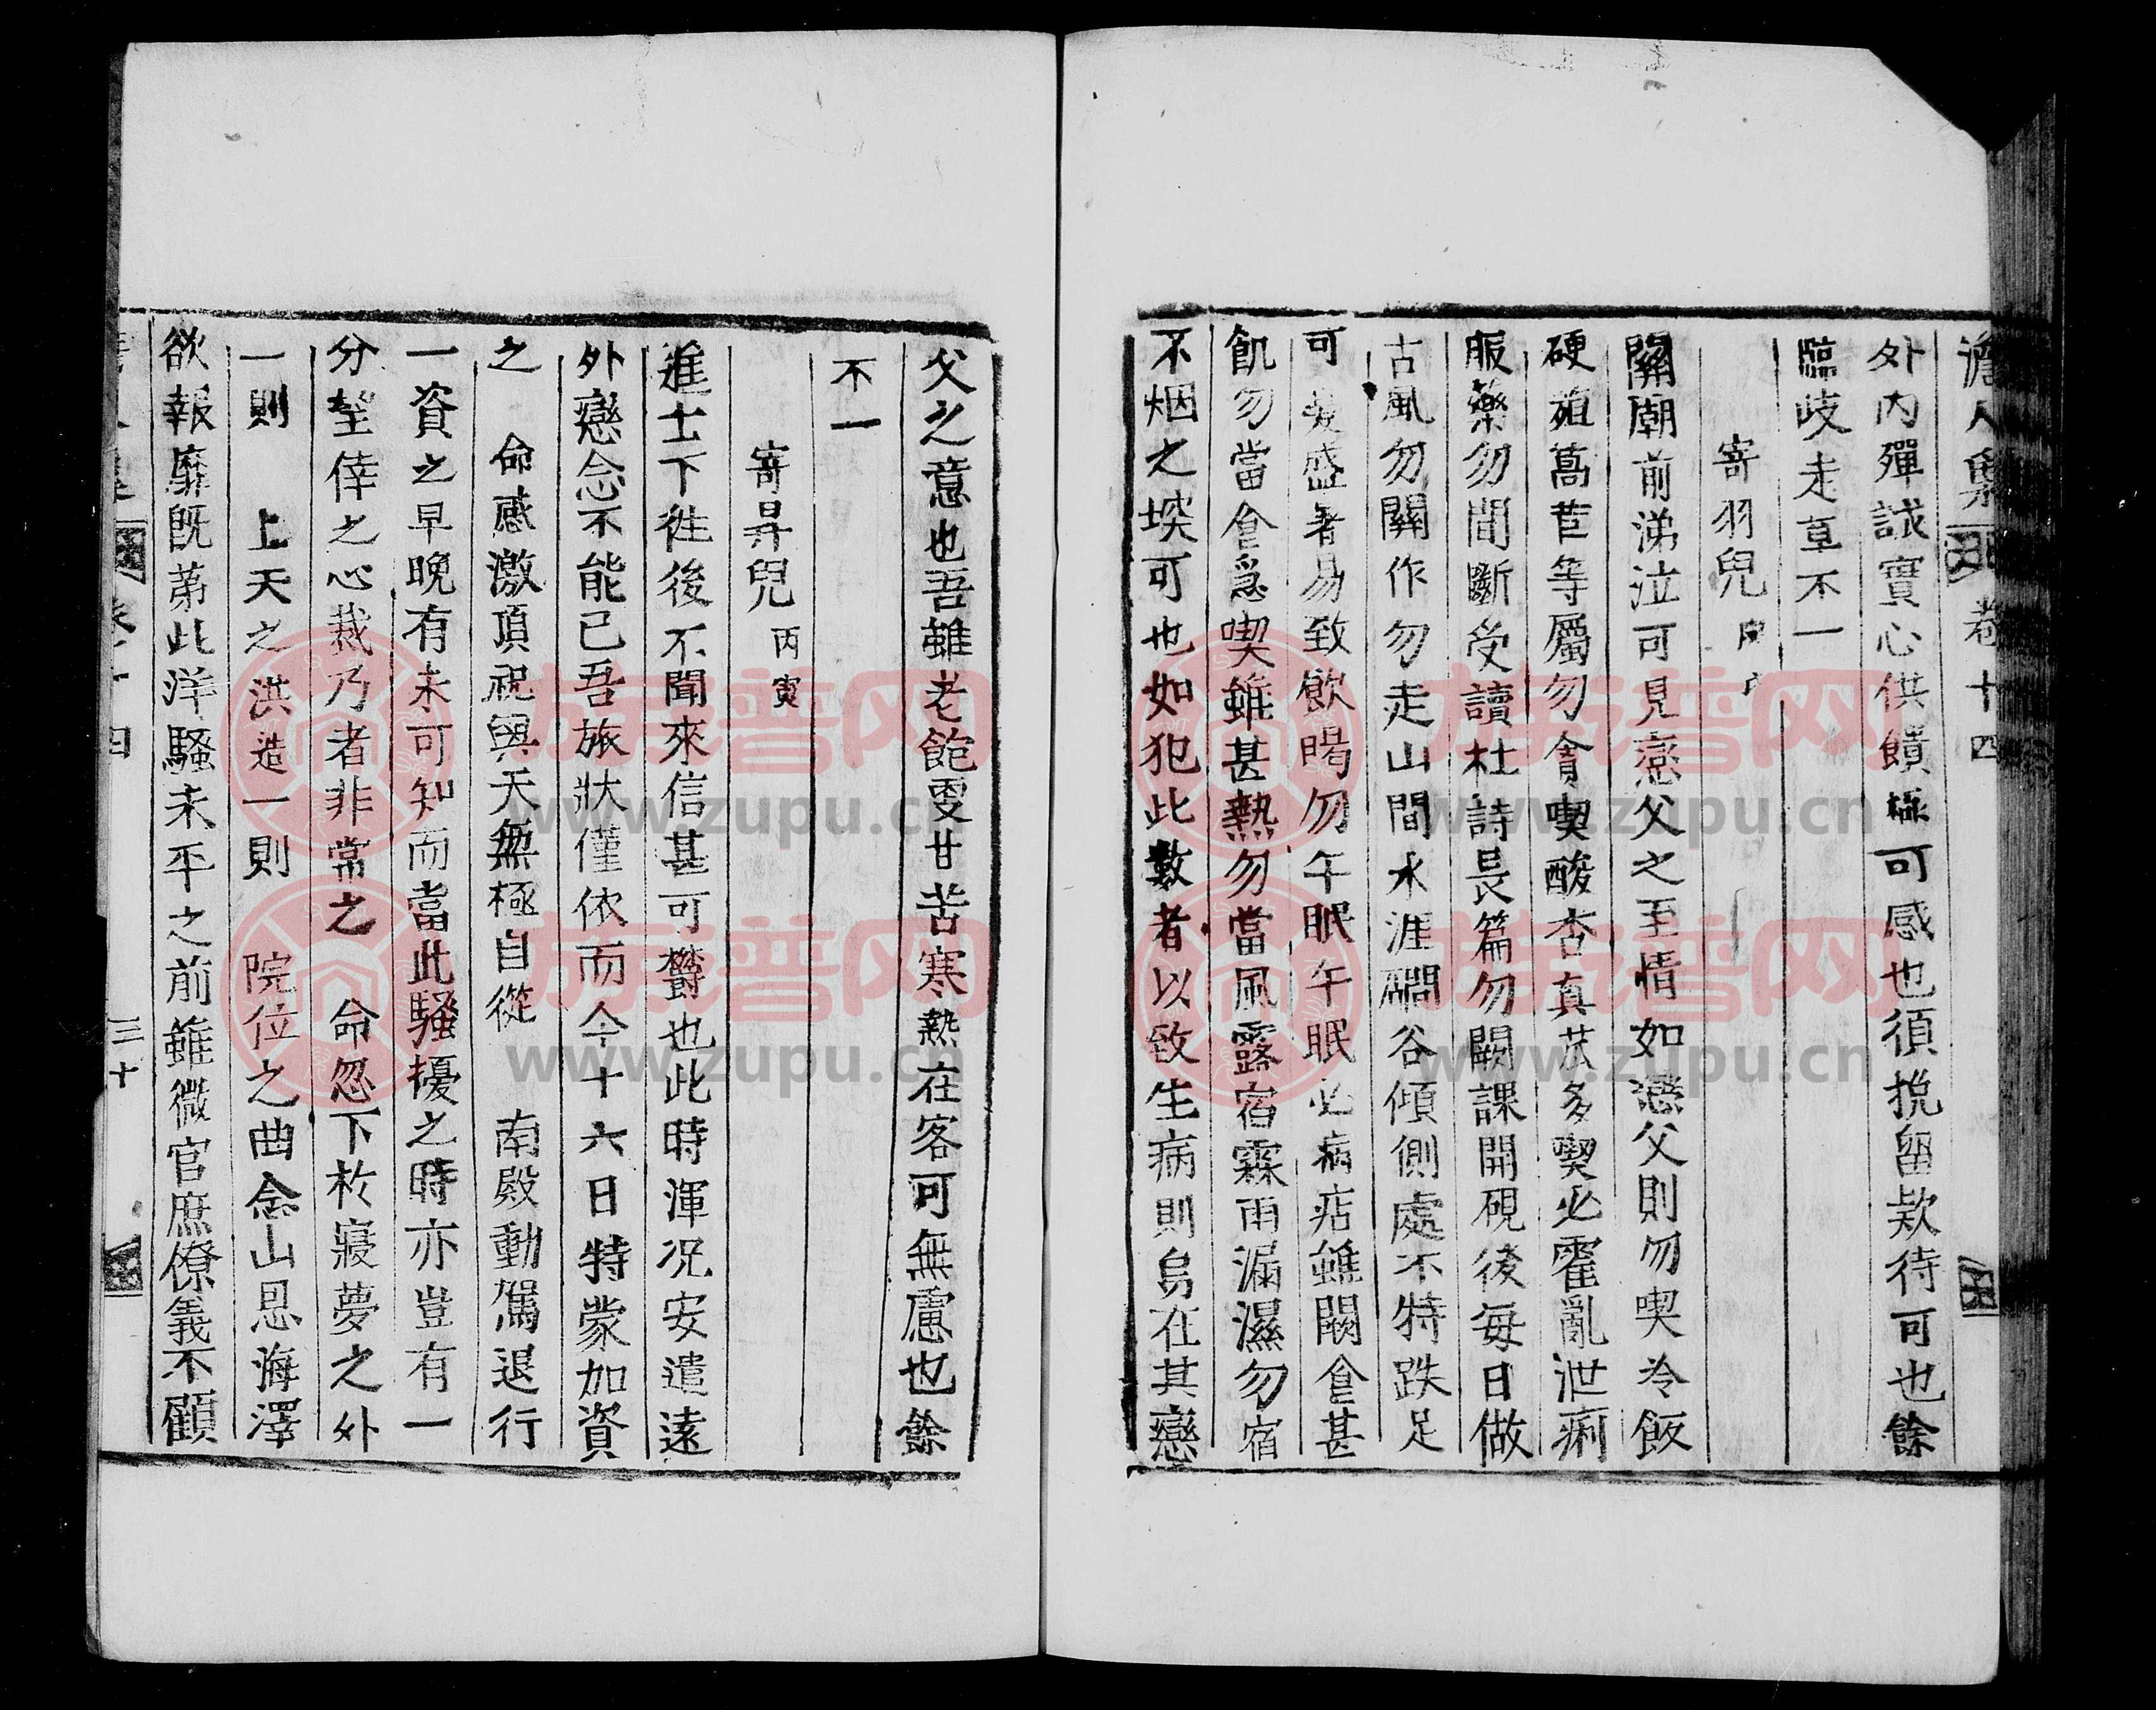 澹人集 卷十四
外內殫誠實心供饋極可感也須挽留欵待可也餘
臨歧走草不一
寄羽兒
關廟前涕泣可見戀父之至情如戀父則勿喫冷飯
硬粗萵苣等屬勿貪喫酸杏真苽多喫必霍亂泄痢
服藥勿間斷受讀杜詩長篇勿闕課開硯後每日做
古風勿闕作勿走山間水涯磵谷傾側處不特跌足
可 盛暑易致飮暍勿午眠午眠必病痁雖闕食甚
飢勿當食急喫雖甚熱勿當風露宿霖雨漏濕勿宿
不烟之堗可也如犯此數者以致生病則烏在其戀
父之意也吾雖老飽更甘苦寒熱在客可無慮也餘
不一
寄昇兒 丙寅
進士下徃後不聞來信甚可欝也此時渾况安遣遠
外戀念不能已吾旅狀僅依而今十六日特蒙加資
之 命感激頂祝與天無極自從 南殿動駕退行
一資之早晚有未可知而當此騷擾之時亦豈有一
分望倖之心哉乃者非常之 命忽下於寢夢之外
一則 上天之洪造一則 院位之曲念山恩海澤
欲報靡旣第此洋騷未平之前雖微官庶僚義不顧
卷十四 三十
族谱网
www.zupu.cn
族谱网
www.zupu.cn
族谱网
www.zupu.cn
族谱网
www.zupu.cn